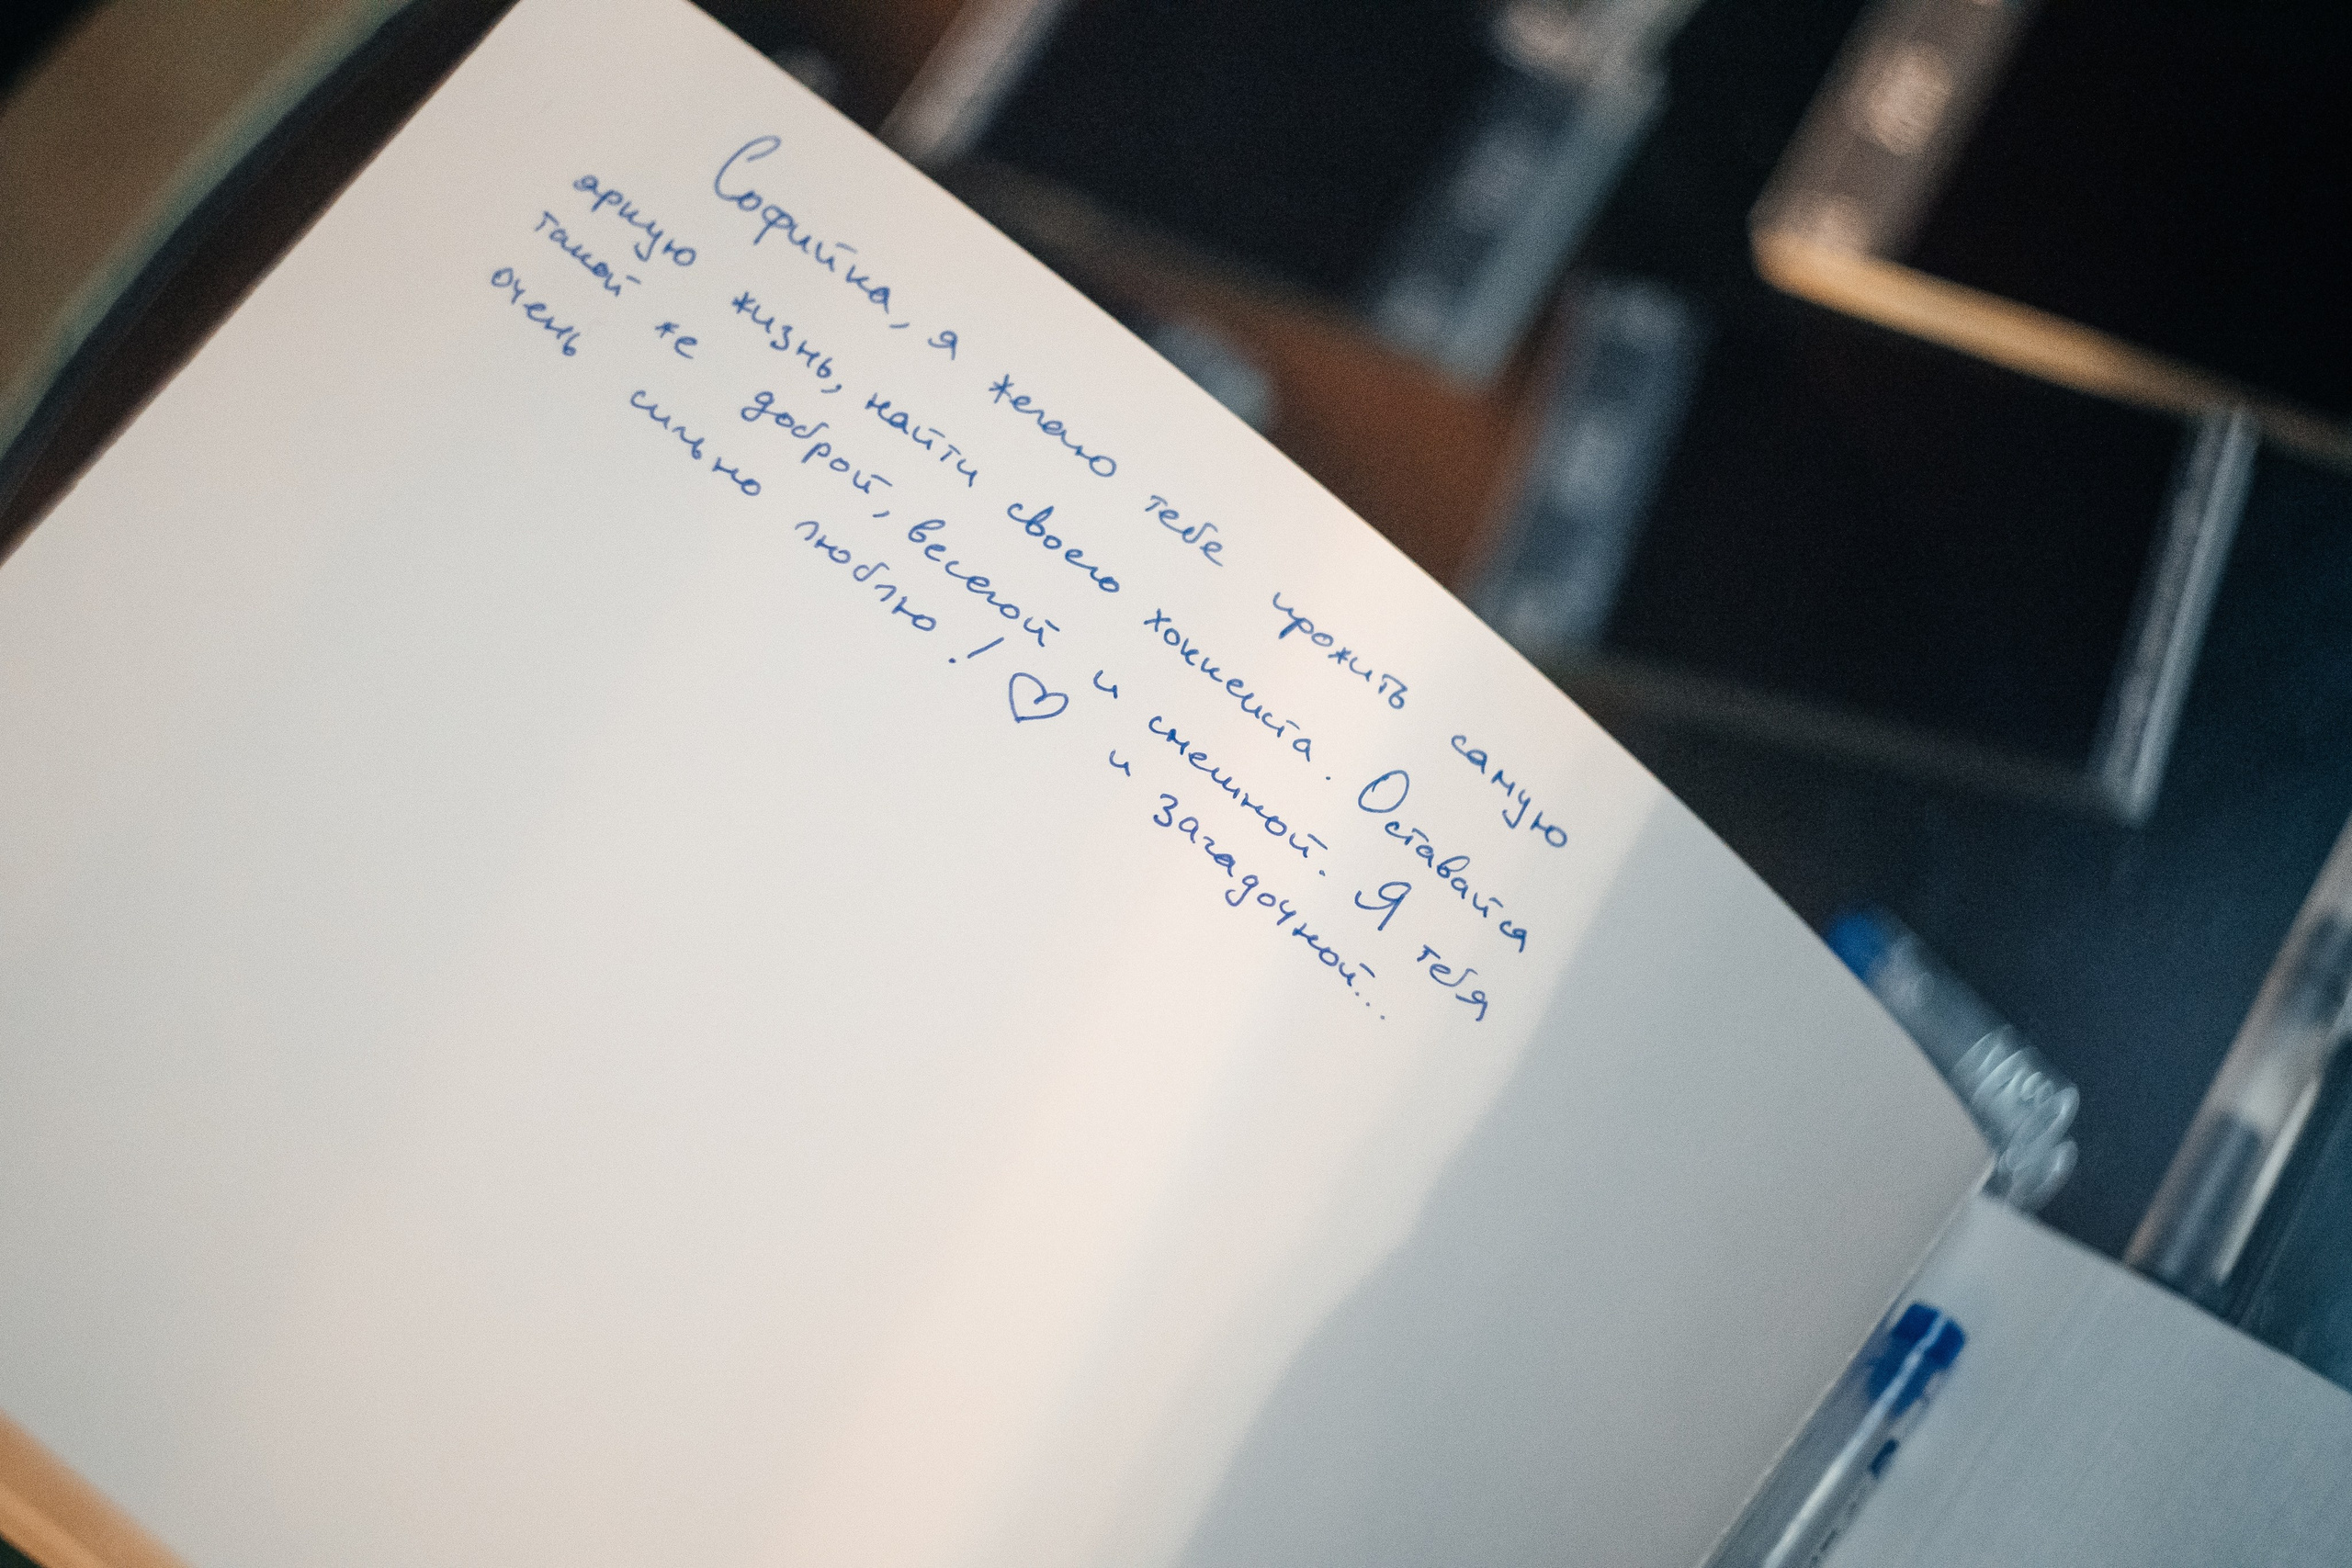 Софийка, я желаю тебе прожить самую
яркую жизнь, найти своего хоккеиста. Оставайся
такой же доброй, веселой и смешной. Я тебя
очень сильно люблю! ♡ и загадочной...